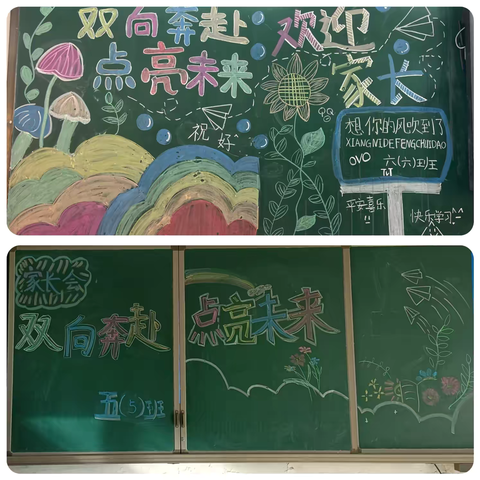 双向奔赴
点亮未来
祝好
欢迎
家长
想你的风吹到了
XIANGNIDEFENGCHUIDAO
OVO 六(六)班
TvT
平安喜乐
!!
快乐学习^^
家长会
双向奔赴
点亮未来
五(5)班